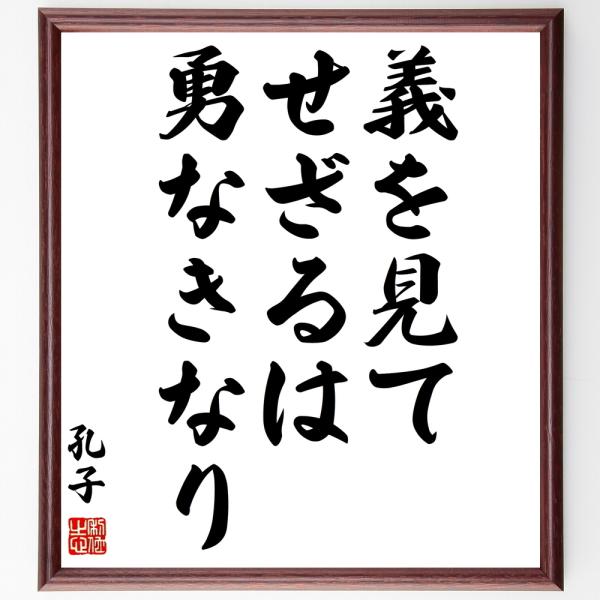 義を見て
せざるは
勇なきなり
孔子